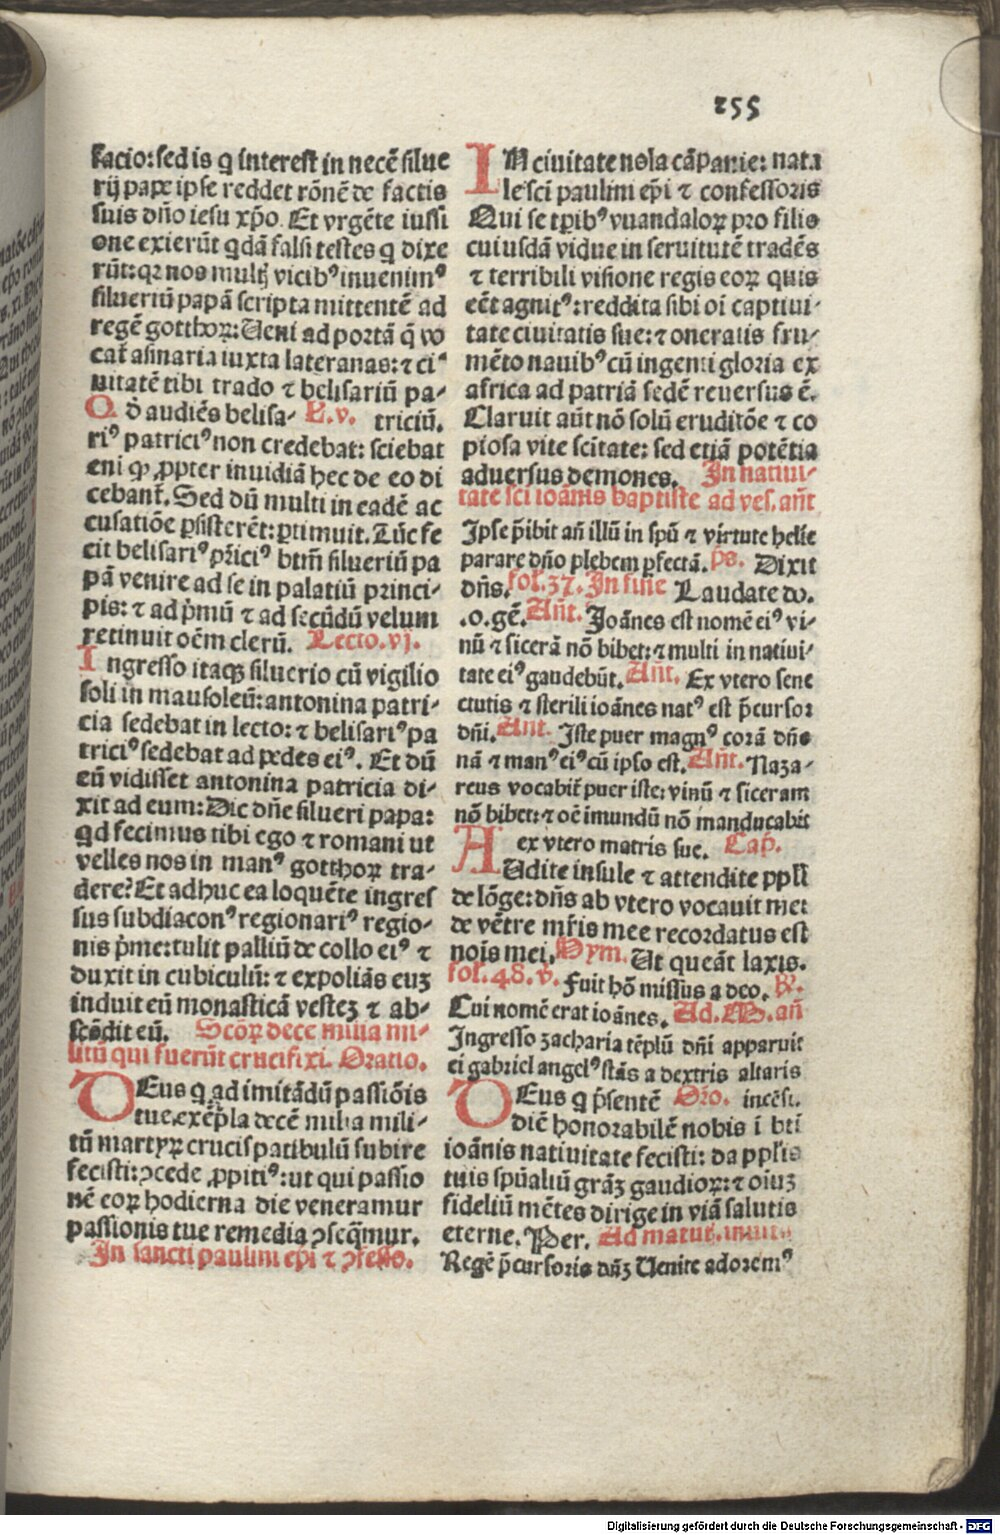 255
facio: sed is q̄ interest in necē silue
rij pape ipse reddet rōnē de factis
suis dn̄o iesu xp̄o. Et vrgēte iussi
one exierūt qdā falsi testes q̄ dixe
rūt: qꝛ nos multꝭ vicibꝰ inuenimꝰ
silueriū papā scripta mittentē ad
regē gotthoꝝ: Ueni ad portā q̄ vo
cat̄ asinaria iuxta lateranas: ⁊ ci-
uitatē tibi trado ⁊ belisariū pa-
Q d̄ audiēs belisa- L.v. triciū.
riꝰ patriciꝰ non credebat: sciebat
eni ꝙ ꝓpter inuidiā hec de eo di
cebant̄. Sed dū multi in eadē ac
cusatiōe ꝑsisterēt: ꝑtimuit. Tūc fe
cit belisariꝰ pr̄iciꝰ btm̄ silueriū pa
pā venire ad se in palatiū princi-
pis: ⁊ ad p̄mū ⁊ ad secūdū velum
retinuit oēm clerū. Lectio.vj.
I ngresso itaqꝫ siluerio cū vigilio
soli in mausoleū: antonina patri-
cia sedebat in lecto: ⁊ belisariꝰ pa
triciꝰ sedebat ad pedes eiꝰ. Et dū
eū vidisset antonina patricia di-
xit ad eum: Dic dn̄e silueri papa:
qd fecimus tibi ego ⁊ romani ut
velles nos in manꝰ gotthoꝝ tra-
dere? Et adhuc ea loquēte ingres
sus subdiaconꝰ regionariꝰ regio-
nis p̄me: tulit palliū de collo eiꝰ ⁊
duxit in cubiculū: ⁊ expoliās euꝫ
induit eū monasticā vesteꝫ ⁊ ab-
scōdit eū. Scōꝝ decē milia mi-
litū qui fuerūt crucifixi. Oratio.
DEus q̄ ad imitādū passiōis
tue exēpla decē milia mili-
tū martyꝝ crucis patibulū subire
fecisti: ꝯcede ꝓpitiꝰ: ut qui passio
nē eoꝝ hodierna die veneramur
passionis tue remedia ꝯseq̄mur.
In sancti paulini ep̄i ⁊ ꝯfesso.
IN ciuitate nola cāpanie: nata
le scī paulini ep̄i ⁊ confessoris
Qui se tp̄ibꝰ vuandaloꝝ pro filio
cuiusdā vidue in seruitutē tradēs
⁊ terribili visione regis eoꝝ quis
eēt agnitꝰ: reddita sibi oī captiui-
tate ciuitatis sue: ⁊ oneratis fru-
mēto nauibꝰ cū ingenti gloria ex
africa ad patriā sedē reuersus ē.
Claruit aūt nō solū eruditōe ⁊ co
piosa vite scītate: sed etiā potētia
aduersus demones. In natiui-
tate sci ioānis baptiste ad ves. an̄t
Ipse p̄ibit an̄ illū in sp̄u ⁊ virtute helie
parare dn̄o plebem ꝑfectā. p̄s. Dixit
dn̄s. fol. 37. In fine Laudate do.
.o.gē. An̄t. Joānes est nomē eiꝰ vi-
nū ⁊ sicerā nō bibet: ⁊ multi in natiui-
tate eiꝰ gaudebūt. Ant. Ex vtero sene
ctutis ⁊ sterili ioānes natꝰ est p̄cursor
dn̄i. Ant. Iste puer magnꝰ corā dn̄o
nā ⁊ manꝰ eiꝰ cū ipso est. An̄t. Naza-
reus vocabit̄ puer iste: vinū ⁊ siceram
nō bibet: ⁊ oē imundū nō manducabit
ex vtero matris sue. Cap̄.
AUdite insule ⁊ attendite ppl̄i
de lōge: dn̄s ab vtero vocauit me:
de vētre mr̄is mee recordatus est
nois̄ mei. Hym. Ut queāt laxis.
fol. 48. v̄. Fuit hō missus a deo. ℟.
Cui nomē erat ioānes. Ad. M. an̄
Ingresso zacharia tēplū dn̄i apparuit
ei gabriel angelꝰ stās a dextris altaris
DEus q̄ p̄sentē Oro. incēsi.
diē honorabilē nobis ī btī
ioānis natiuitate fecisti: da ppl̄is
tuis sp̄ualiū grāꝫ gaudioꝝ: ⁊ oīuꝫ
fideliū mētes dirige in viā salutis
eterne. Per. Ad matut. inuit.
Regē p̄cursoris dn̄ꝫ Uenite adoremꝰ
Digitalisierung gefördert durch die Deutsche Forschungsgemeinschaft - DFG